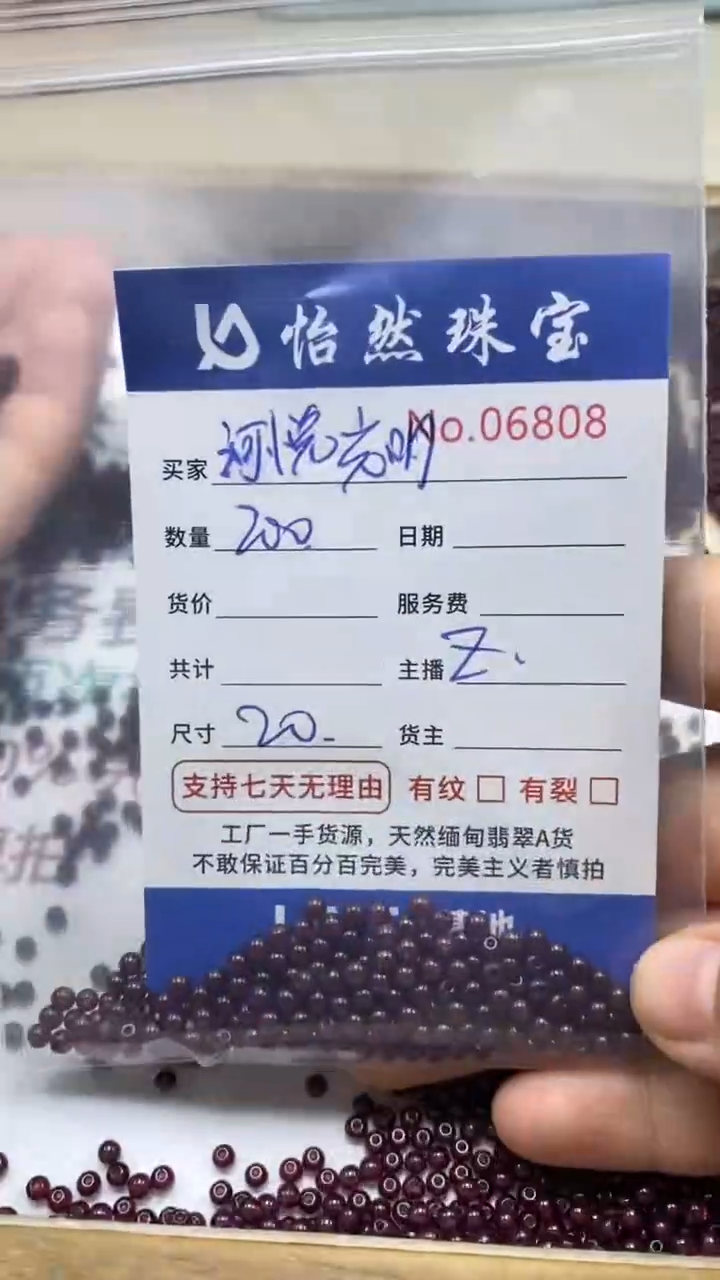 怡然珠宝
No.06808
买家
数量 200 日期
货价 服务费
共计 主播 Z.
尺寸 20 货主
支持七天无理由 有纹 有裂
工厂一手货源，天然缅甸翡翠A货
不敢保证百分百完美，完美主义者慎拍